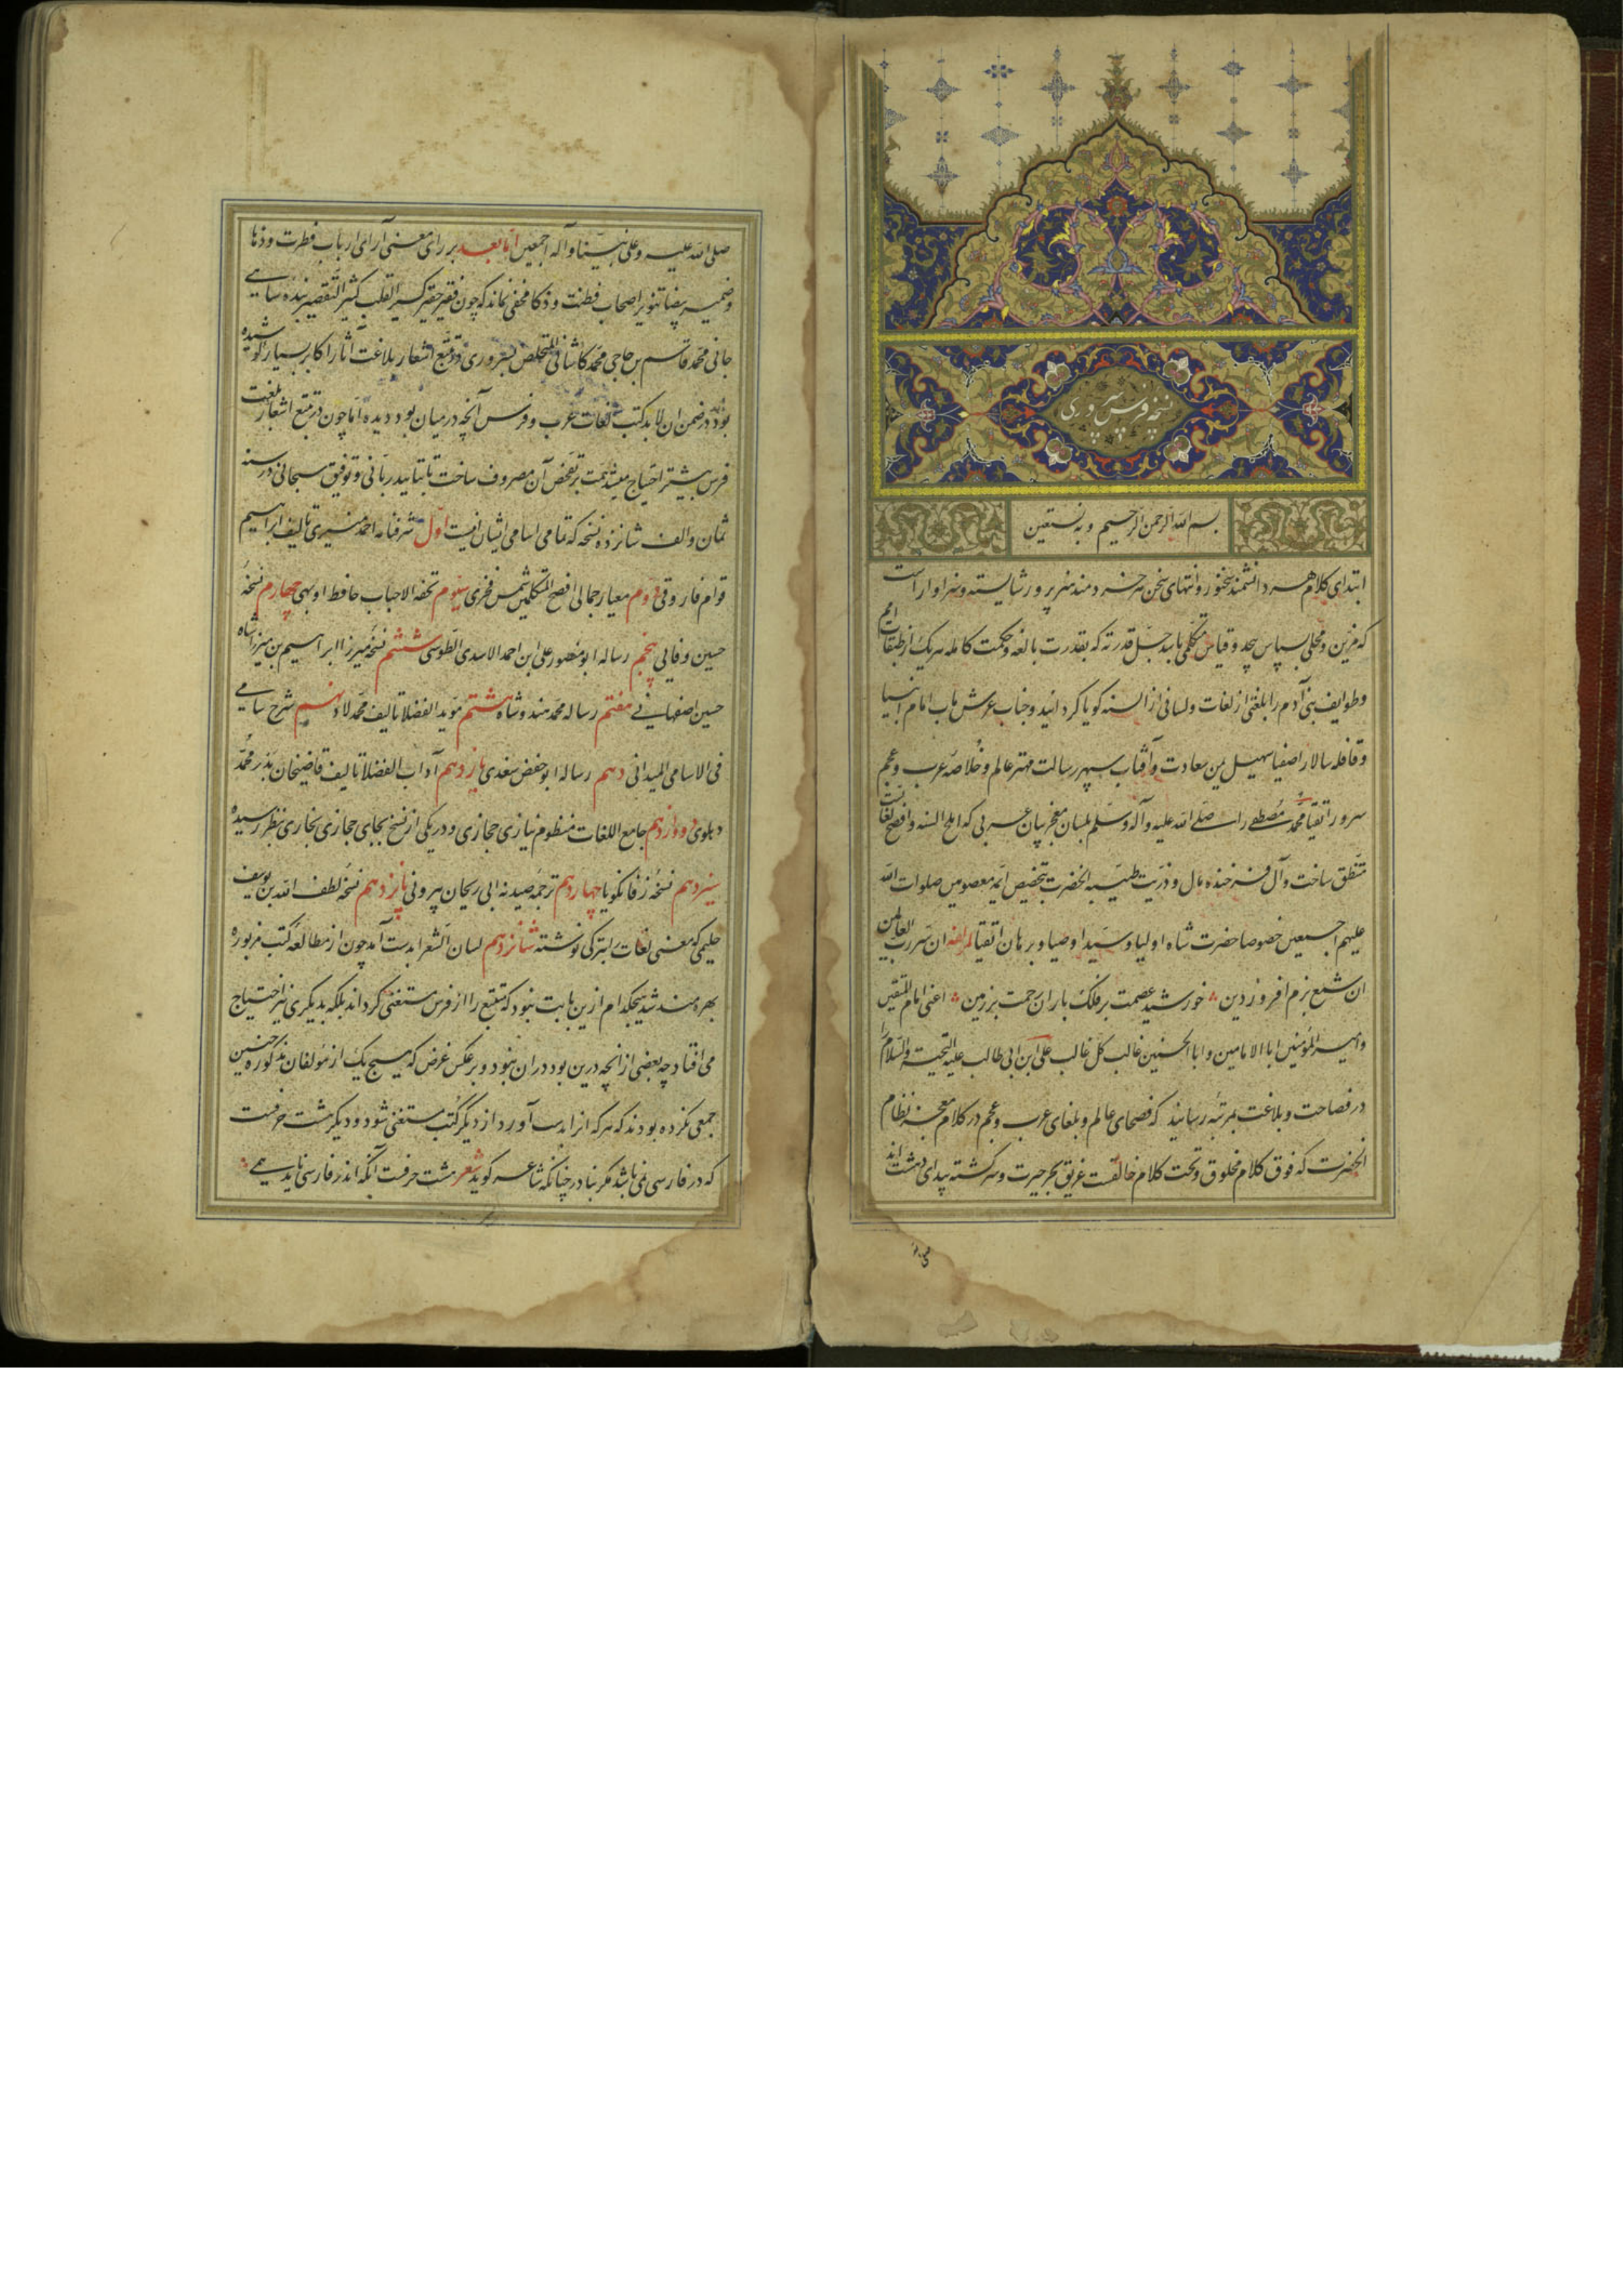 نسخه فرس سروری
بسم الله الرحمن الرحیم و به نستعین
ابتدای کلام هر دانشمند سخنور و انتهای سخن هر خردمند هنرپرور شایسته و سزاوار آنست
که مزین و محلی بسپاس بیحد و قیاس متکلمی باشد جل قدرته که بقدرت بالغه و حکمت کامله هر یک از طبقات امم
و طوایف بنی آدم را بلغتی از لغات و لسانی از السنه گویا گردانید و جناب عرش مآب امام انبیا
و قافله سالار اصفیا سهیل یمن سعادت و آفتاب سپهر رسالت مهتر عالم و خلاصه عرب و عجم
سرور اتقیا محمد مصطفی را صلی الله علیه و آله و سلم بلسان معجز بیان عربی که املح السنه و افصح لغاتست
منطق ساخت و آل فرخنده بال و ذریت طیبه آنحضرت بتخصیص ائمه معصومین صلوات الله
علیهم اجمعین خصوصا حضرت شاه اولیا و سید اوصیا و برهان اتقیا لمؤلفه ان سر رب العالمین
ان شمع بزم افروز دین خورشید عصمت بر فلک باران رحمت بر زمین اعنی امام المتقین
و امیر المؤمنین ابا الامامین و ابا الحسنین غالب کل غالب علی ابن ابی طالب علیه التحیة والسلام را
در فصاحت و بلاغت بمرتبه رسانید که فصحای عالم و بلغای عرب و عجم در کلام معجز نظام
آنحضرت که فوق کلام مخلوق و تحت کلام خالقست غریق بحر حیرت و سرگشته بیدای دهشت اند
صلی الله علیه و علی نبینا و آله اجمعین اما بعد بر رای معنی آرای ارباب فطرت و ذها
و ضمیر بیضا تنویر اصحاب فطنت و ذکا مخفی نماند که چون فقیر حقیر کسیر القلب کثیر التقصیر بنده
جانی محمد قاسم بن حاجی محمد کاشانی المتخلص بسروری در تتبع اشعار بلاغت آثار اکابر بسیار کوشیده
بود در ضمن ان لابد کتب لغات عرب و فرس آنچه در میان بود دیده اما چون در تتبع اشعار بلغت
فرس بیشتر احتیاج میشد همت بر تفحص آن مصروف ساخت تا بتایید ربانی و توفیق سبحانی در سنه
ثمان و الف شانزده نسخه که تمامی اسامی ایشان اینست اول شرفنامه احمد منیری تالیف ابراهیم
قوام فاروقی دوم معیار جمالی افصح المتکلمین شمس فخری سیوم تحفة الاحباب حافظ اوبهی چهارم نسخه
حسین وفایی پنجم رساله ابو منصور علی ابن احمد الاسدی الطوسی ششم نسخه میرزا ابراهیم بن میرزا شاه
حسین اصفهانی هفتم رساله محمد هندوشاه هشتم موید الفضلا تالیف محمد لاد نهم شرح سامی
فی الاسامی المیدانی دهم رساله ابو حفص سغدی یازدهم آداب الفضلا تالیف قاضیخان بدر محمد
دهلوی دوازدهم جامع اللغات منظوم نیازی حجازی و در یکی از نسخ بجای حجازی بخاری بنظر رسیده
سیزدهم نسخه زفانگویا چهاردهم ترجمه صیدنه ابی ریحان بیرونی پانزدهم نسخه لطف الله بن یوسف
حلیمی که معنی لغات بترکی نوشته شانزدهم لسان الشعرا بدست آمد چون از مطالعه کتب مزبوره
بهره مند شد هیچکدام ازین بابت نبود که تتبع را از فرس مستغنی گرداند بلکه بدیگری نیز احتیاج
می افتاد چه بعضی از آنچه درین بود در ان نبود و بر عکس غرض که هیچ یک از مؤلفان مذکوره چنین
جمعی نکرده بودند که هر که انرا بدست آورد از دیگر کتب مستغنی شود و دیگر هشت حرفست
که در فارسی نمی باشد مگر بنادر چنانکه شاعر گوید شعر هشت حرفست آنکه اندر فارسی ناید همی